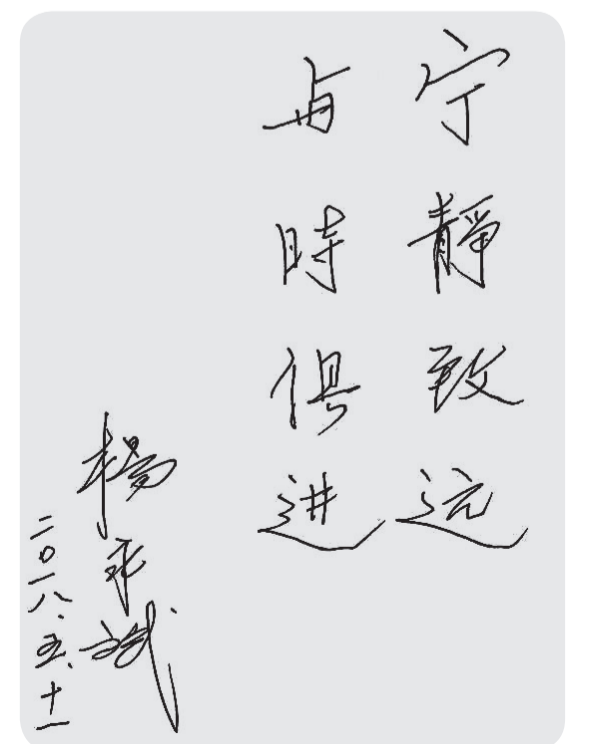 宁靜致远
与時俱进
楊永斌
二〇一八.五.十一